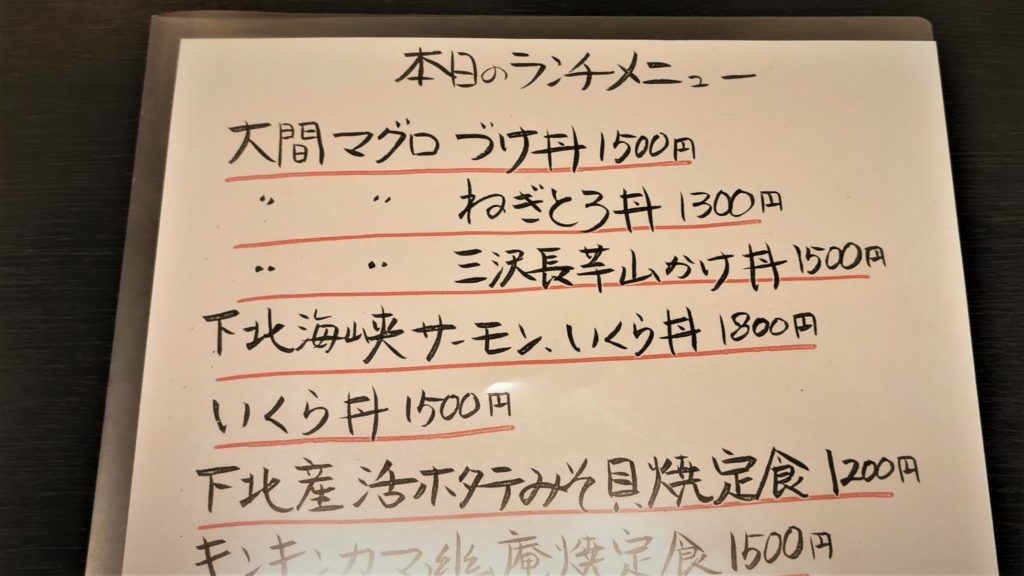 本日のランチメニュー
大間マグロ づけ丼 1500円
〃 〃 ねぎとろ丼 1300円
〃 〃 三沢長芋山かけ丼 1500円
下北海峡サーモン、いくら丼 1800円
いくら丼 1500円
下北産 活ホタテみそ貝焼定食 1200円
キンキンカマ幽庵焼定食 1500円